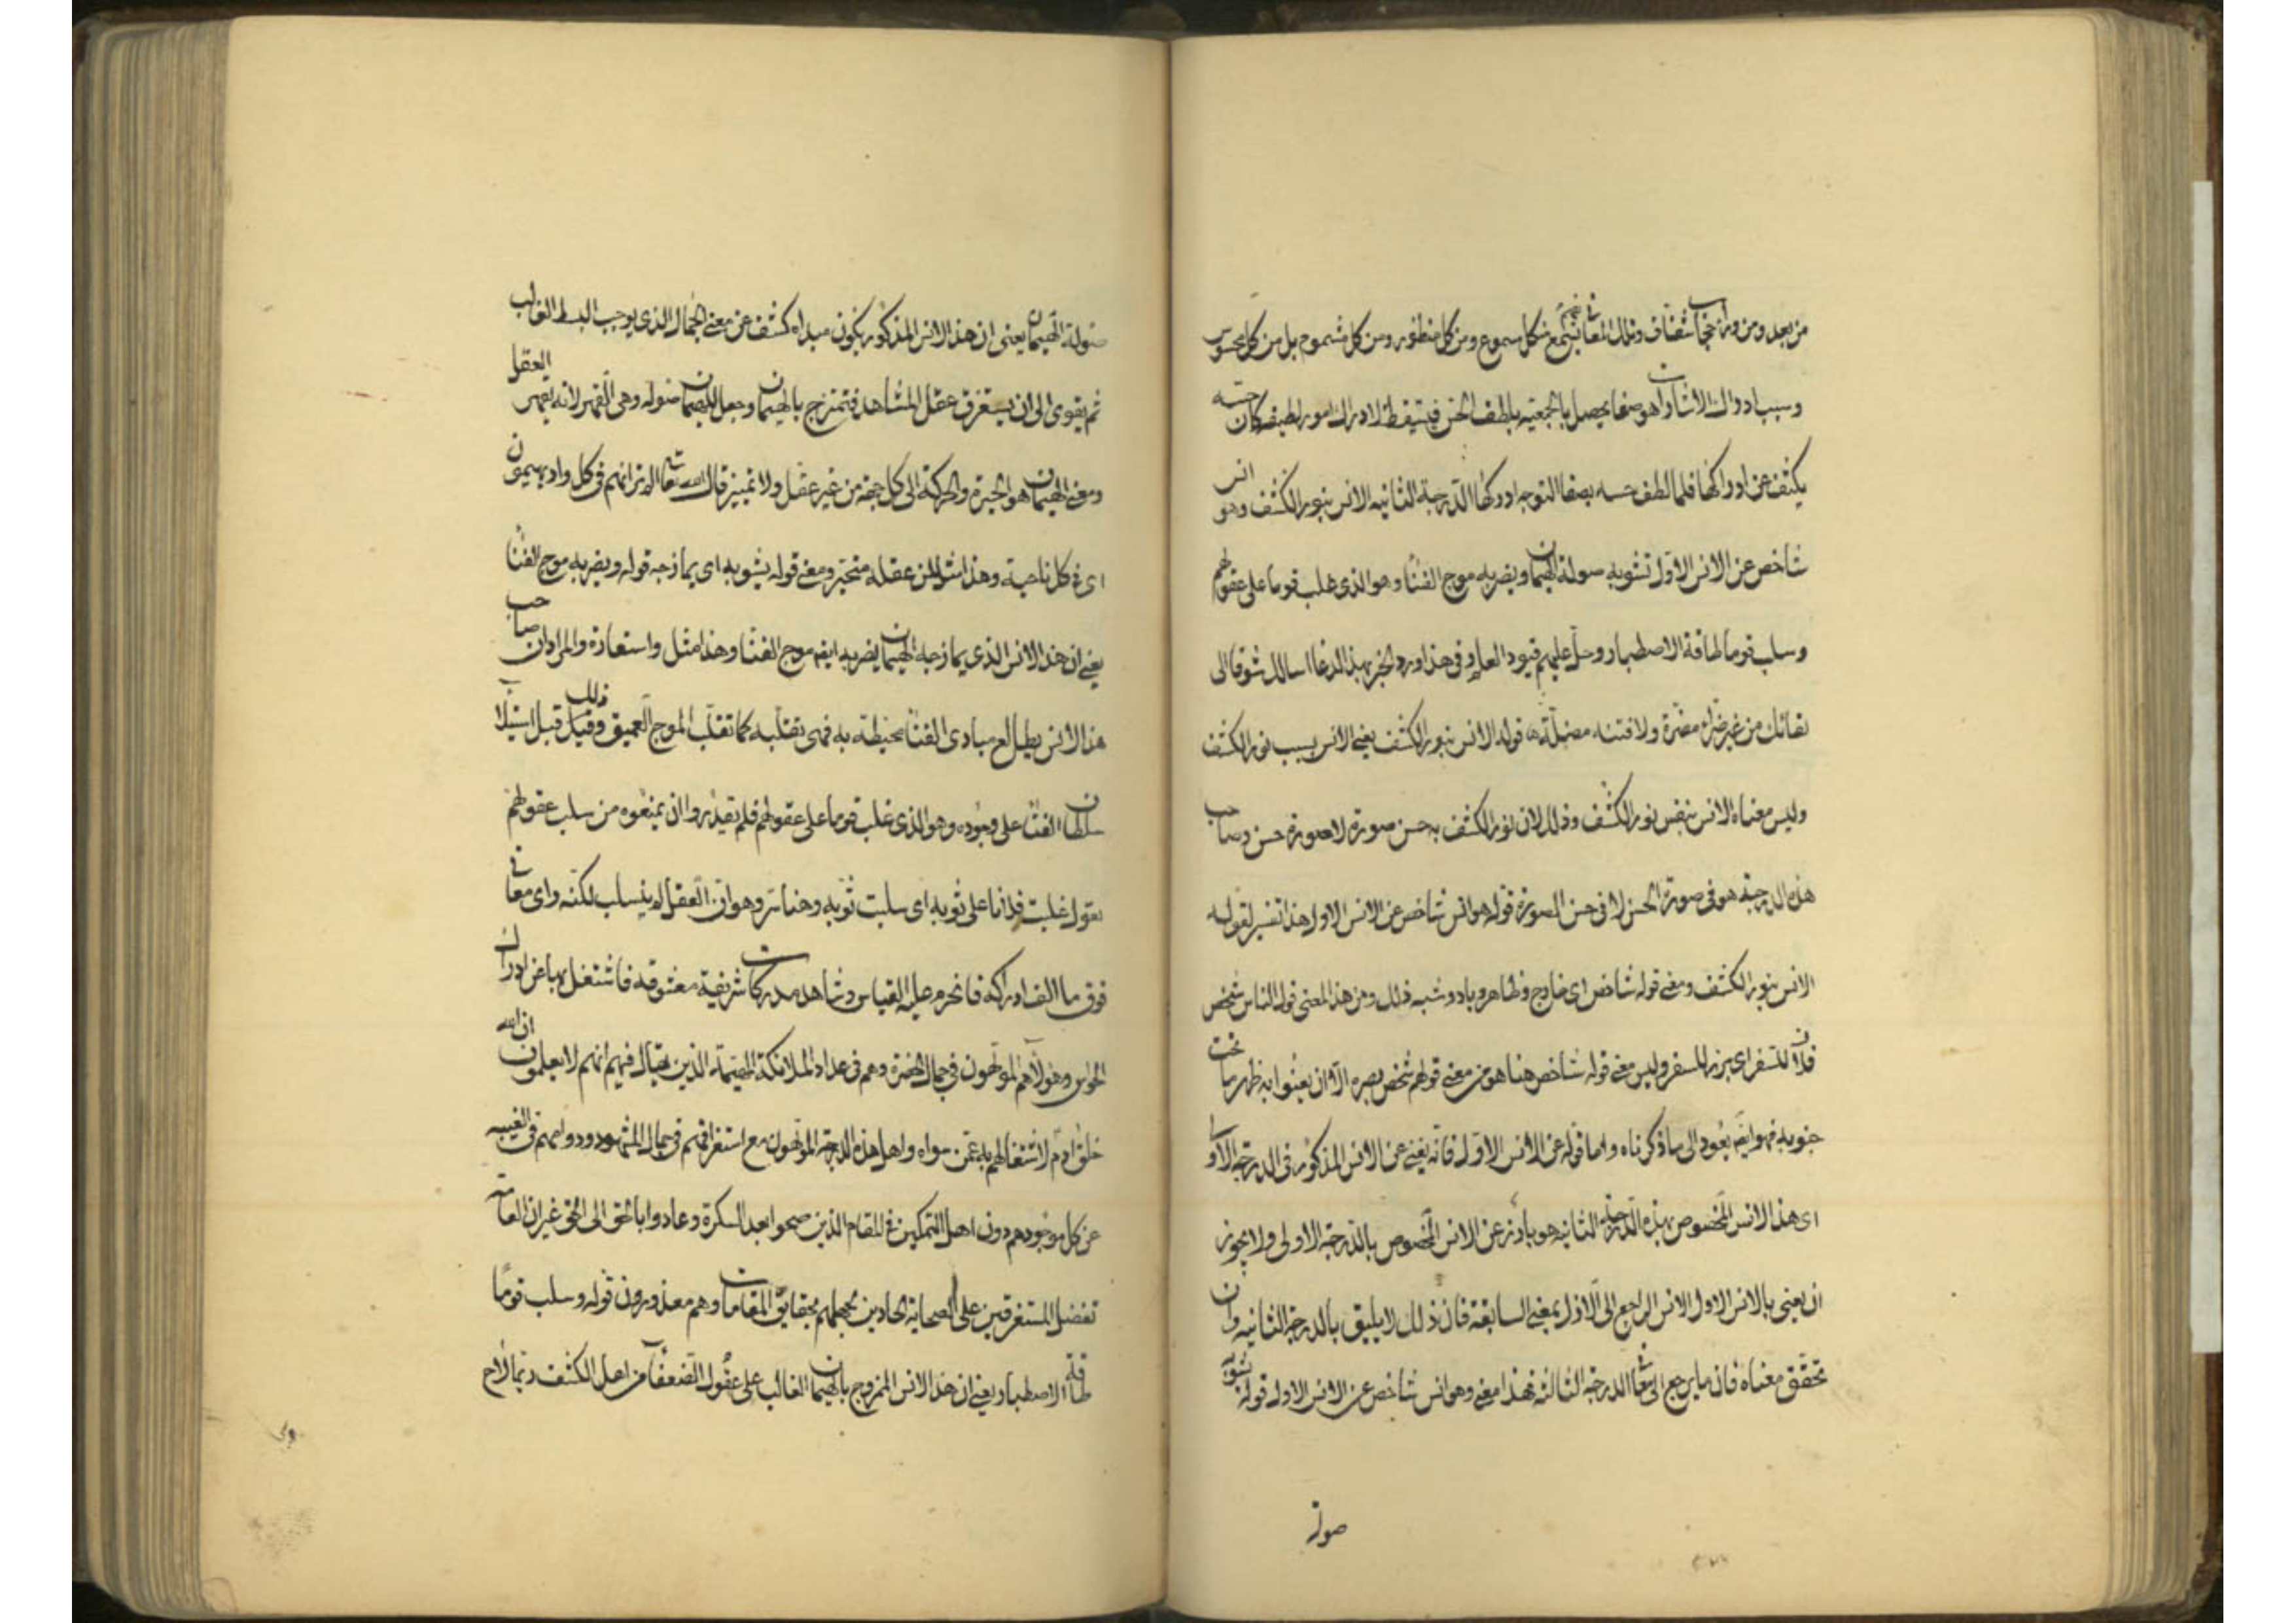 من بعد ومن وراء حجاب شفاف وتلك المعاني تنجمع من كل مسموع ومن كل منظور ومن كل مشموم بل من كل محسوس
وسبب ادراك الاشارات هو صفا يحصل بالجمعية يلطف الحس فيتيقظ لادراك امور لطيفة كان حسه
يكثف عن ادراكها فلما لطف حسه بصفا التوجه ادركها الدرجة الثانيه الانس بنور الكشف وهو انس
شاخص عن الانس الاول تشوبه صولة الهيمان ويضربه موج الفنا وهو الذي غلب قوما على عقولهم
وسلب قوما طاقة الاصطبار وحل عليهم قيود العلم وفي هذا ورد الخبر بهذا الدعا اسالك شوقا الى
لقائك من غير ضراء مضرة ولا فتنة مضلة قوله الانس بنور الكشف يعني الانس بسبب نور الكشف
وليس معناه الانس بنفس نور الكشف وذلك لان نور الكشف به حسن صورة لا صورة حسن وصاحب
هذه الدرجة هو في صورة الحسن لا في حسن الصورة قوله هو انس شاخص عن الانس الاول هذا تفسير لقوله
الانس بنور الكشف ومعنى قوله شاخص اي خارج وظاهر وباد وشبه ذلك ومن هذا المعنى قول الناس شخص
فلان للسفر اي برز للسفر وليس معنى قوله شاخص هنا هو من معنى قولهم شخص بصره الا ان يعنوا به ظهر ما تحت
جنوبه فهو ايضا يعود الى ما ذكرناه واما قوله عن الانس الاول فانه يعني عن الانس المذكور في الدرجة الاولى
اي هذا الانس المخصوص بهذه الدرجة الثانيه هو بارز عن الانس المخصوص بالدرجة الاولى ولا يجوز
ان يعني بالانس الاول الانس الراجع الى الازل بمعنى السابقة فان ذلك لا يليق بالدرجة الثانيه وان
تحقق معناه فانما يرجع الى معاني الدرجة الثالثة فهذا معنى وهو انس شاخص عن الانس الاول قوله تشوبه
صولة
صولة الهيمان يعني ان هذا الانس المذكور يكون مبداه كشف عن معنى الجمال الذي يوجب البسط الغالب
ثم يقوى الى ان يستغرق عقل المشاهد فتمتزج بالهيمان وجعل للهيمان صولة وهي القهر لانه يقهر العقل
ومعنى الهيمان هو الحيرة والحركة الى كل جهة من غير عقل ولا تمييز قال الله تعالى الم تر انهم في كل واد يهيمون
اي في كل ناحية وهذا مثل لمن عقله متحير ومعنى قوله يشوبه اي يمازجه قوله ويضربه موج الفنا
يعني ان هذا الانس الذي يمازجه الهيمان يضربه ايضا موج الفنا وهذا مثل واستعارة والمراد ان صاحب
هذا الانس يطالع مبادي الفنا محيطة به فهي تقلبه كما تقلب الموج العميق وقيل ذلك قبل استيلا
سلطان الفنا على وجوده وهو الذي غلب قوما على عقولهم فلم يقدروا ان يمنعوه من سلب عقولهم
تقول غلبت فلانا على ثوبه اي سلبت ثوبه وهنا سر وهو ان العقل لم ينسلب لكنه راى معاني
فوق ما الف ادراكه فانخرم عليه القياس وشاهد مدركات شريفة معشوقة فاشتغل بها عن ادراك
الحواس وهولاء هم المولهون في جمال الحضرة وهم في عداد الملائكة المهيمة الذين يقال فيهم انهم لا يعلمون ان الله
خلق ادم لاشتغالهم به عمن سواه واهل هذه الدرجة المولهون مع استغراقهم في جمال المشهود ودوامهم في الغيبه
عن كل موجود هم دون اهل التمكين في المقام الذين صحوا بعد السكرة وعادوا بالحق الى الحق غير ان العامة
تفضل المستغرقين على الصحاة الحادين لجهلهم بحقايق المقامات وهم معذورون قوله وسلب قوما
طاقة الاصطبار يعني ان هذا الانس الممزوج بالهيمان الغالب على عقول الضعفا من اهل الكشف ربما لاح